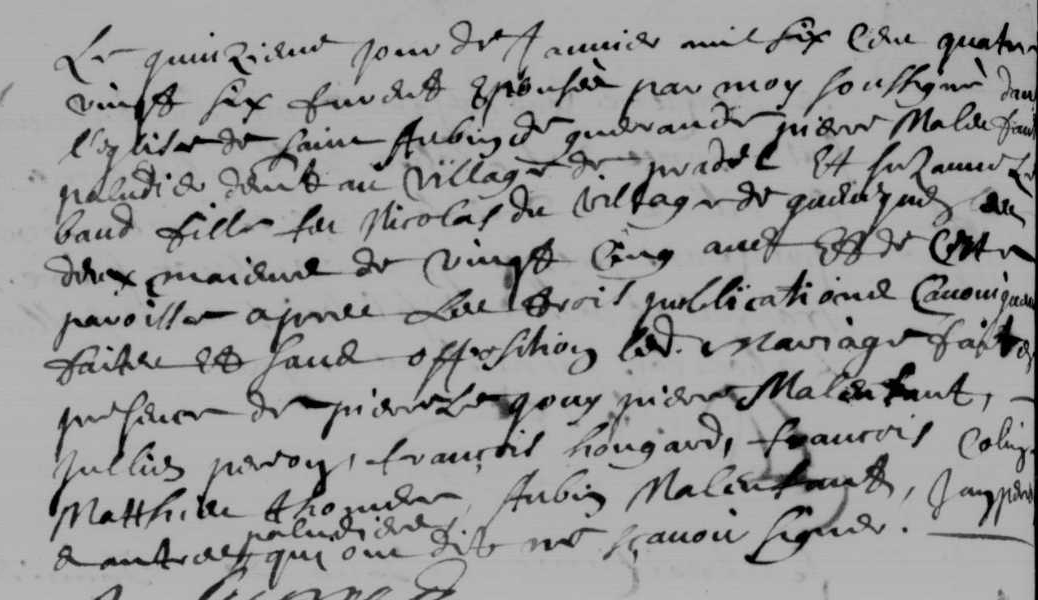 Le quinzieme jour de Janvier mil six cent quatre
vingt six furent Epousés par moy soussigné dans
l'eglise de saint Aubin de guerande pierre Malenfant
paludier demt au village de pradel Et suzanne Le
baud fille feu Nicolas du village de
deux maieurs de vingt cinq ans Et de Cette
paroisse apres Les trois publications Canoniquem
faites Et sans opposition led. Mariage fait en
presence de pierre Le gouy pierre Malenfant,
Jullien perron, françois hougard, françois Colin
Matthieu thomere, Aubin Malenfant, Jan
paludiers
& autres qui ont dit ne sçavoir signer.